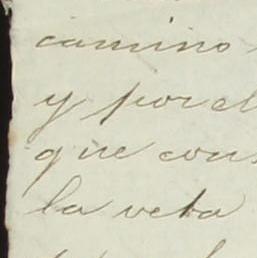 camino
y por el
que cons
la veta